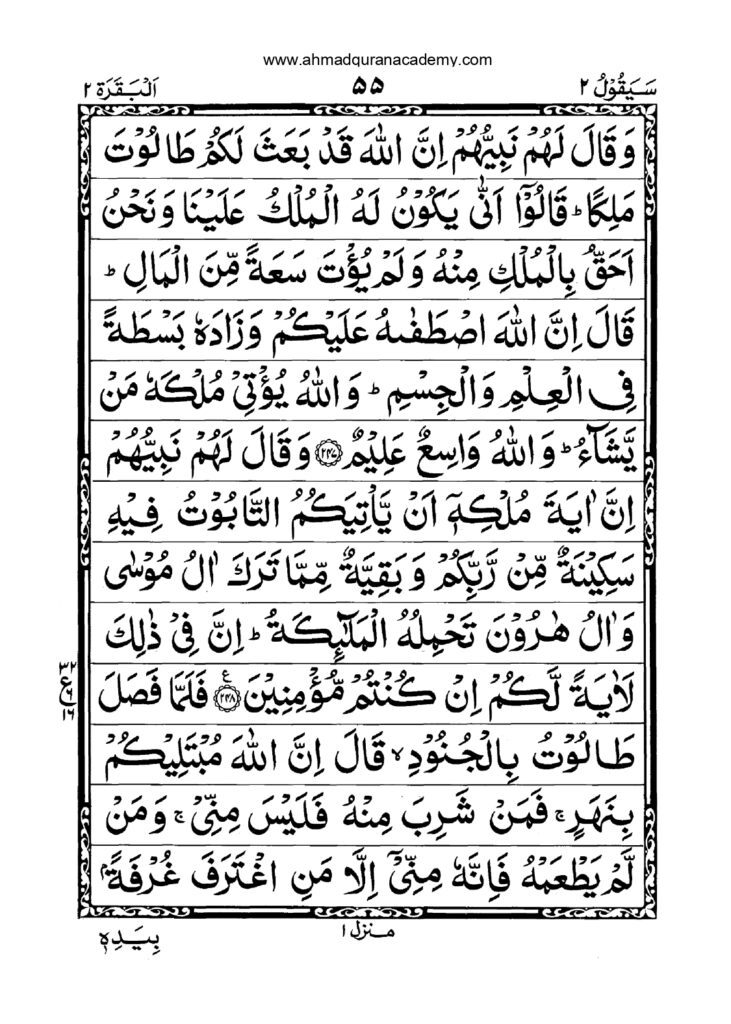 www.ahmadquranacademy.com
سَيَقُوْلُ ٢
۵۵
اَلْبَقَرَة ٢
وَ قَالَ لَهُمْ نَبِيُّهُمْ اِنَّ اللّٰهَ قَدْ بَعَثَ لَكُمْ طَالُوْتَ
مَلِكًا ؕ قَالُوْۤا اَنّٰى يَكُوْنُ لَهُ الْمُلْكُ عَلَيْنَا وَ نَحْنُ
اَحَقُّ بِالْمُلْكِ مِنْهُ وَ لَمْ يُؤْتَ سَعَةً مِّنَ الْمَالِ ؕ
قَالَ اِنَّ اللّٰهَ اصْطَفٰىهُ عَلَيْكُمْ وَ زَادَهٗ بَسْطَةً
فِي الْعِلْمِ وَ الْجِسْمِ ؕ وَ اللّٰهُ يُؤْتِيْ مُلْكَهٗ مَنْ
يَّشَآءُ ؕ وَ اللّٰهُ وَاسِعٌ عَلِيْمٌ ﴿۲۴۷﴾ وَ قَالَ لَهُمْ نَبِيُّهُمْ
اِنَّ اٰيَةَ مُلْكِهٖۤ اَنْ يَّاْتِيَكُمُ التَّابُوْتُ فِيْهِ
سَكِيْنَةٌ مِّنْ رَّبِّكُمْ وَ بَقِيَّةٌ مِّمَّا تَرَكَ اٰلُ مُوْسٰى
وَ اٰلُ هٰرُوْنَ تَحْمِلُهُ الْمَلٰٓئِكَةُ ؕ اِنَّ فِيْ ذٰلِكَ
لَاٰيَةً لَّكُمْ اِنْ كُنْتُمْ مُّؤْمِنِيْنَ ﴿۲۴۸﴾ ع فَلَمَّا فَصَلَ
٣٢
ع
٦
١٦
طَالُوْتُ بِالْجُنُوْدِ ۙ قَالَ اِنَّ اللّٰهَ مُبْتَلِيْكُمْ
بِنَهَرٍ ۚ فَمَنْ شَرِبَ مِنْهُ فَلَيْسَ مِنِّيْ ۚ وَ مَنْ
لَّمْ يَطْعَمْهُ فَاِنَّهٗ مِنِّيْۤ اِلَّا مَنِ اغْتَرَفَ غُرْفَةًۢ
منزل ١
بِيَدِهٖ